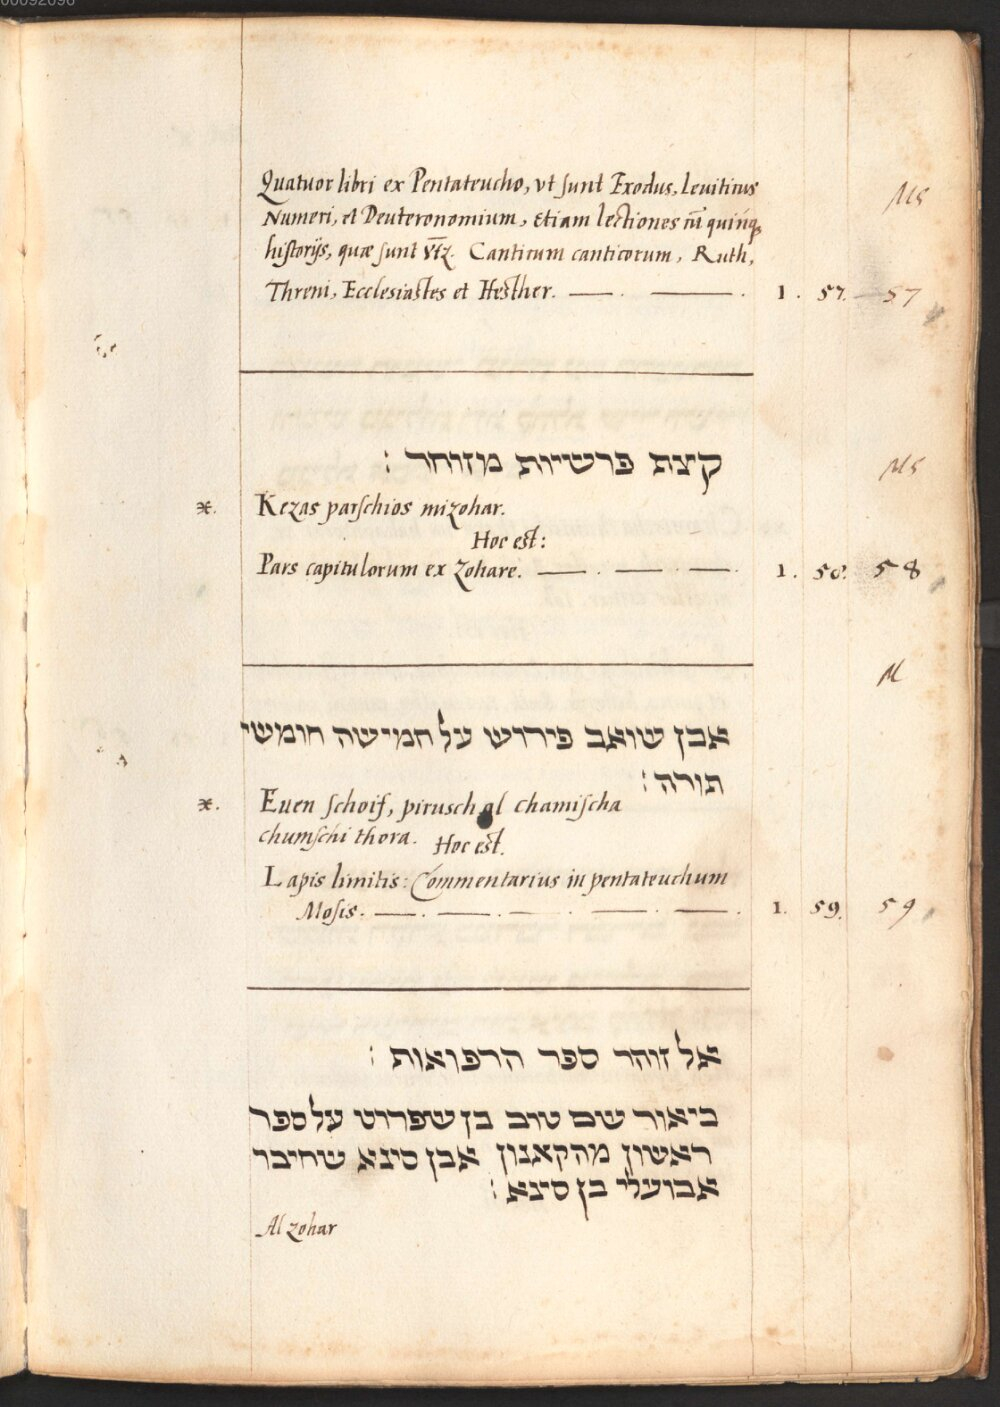 00092098
Quatuor libri ex Pentateucho, vt sunt Exodus, Leuiticus
Ms
Numeri, et Deuteronomium, Etiam lectiones cū quinq̃
historijs, quæ sunt vtz. Canticum canticorum, Ruth,
Threni, Ecclesiastes et Hesther. — . — . 1 . 57. 57
קיצת פרשיות מזוחר :
Ms
x. Kezas parschios mizohar.
Hoc est:
Pars capitulorum ex Zohare. — . — . — . 1 . 58. 58
M
אבן שואב פירוש על חמישה חומשי
תורה :
x. Euen schoif, pirusch al chamischa
chumschi thora. Hoc est.
Lapis limitis: Commentarius in pentateuchum
Mosis. — . — . — . — . — . 1. 59. 59
אל זוהר ספר הרפואות :
ביאור שם טוב בן שפרוט על ספר
ראשון מהקאנון אבן סינא שחיבר
אבועלי בן סינא :
Al zohar